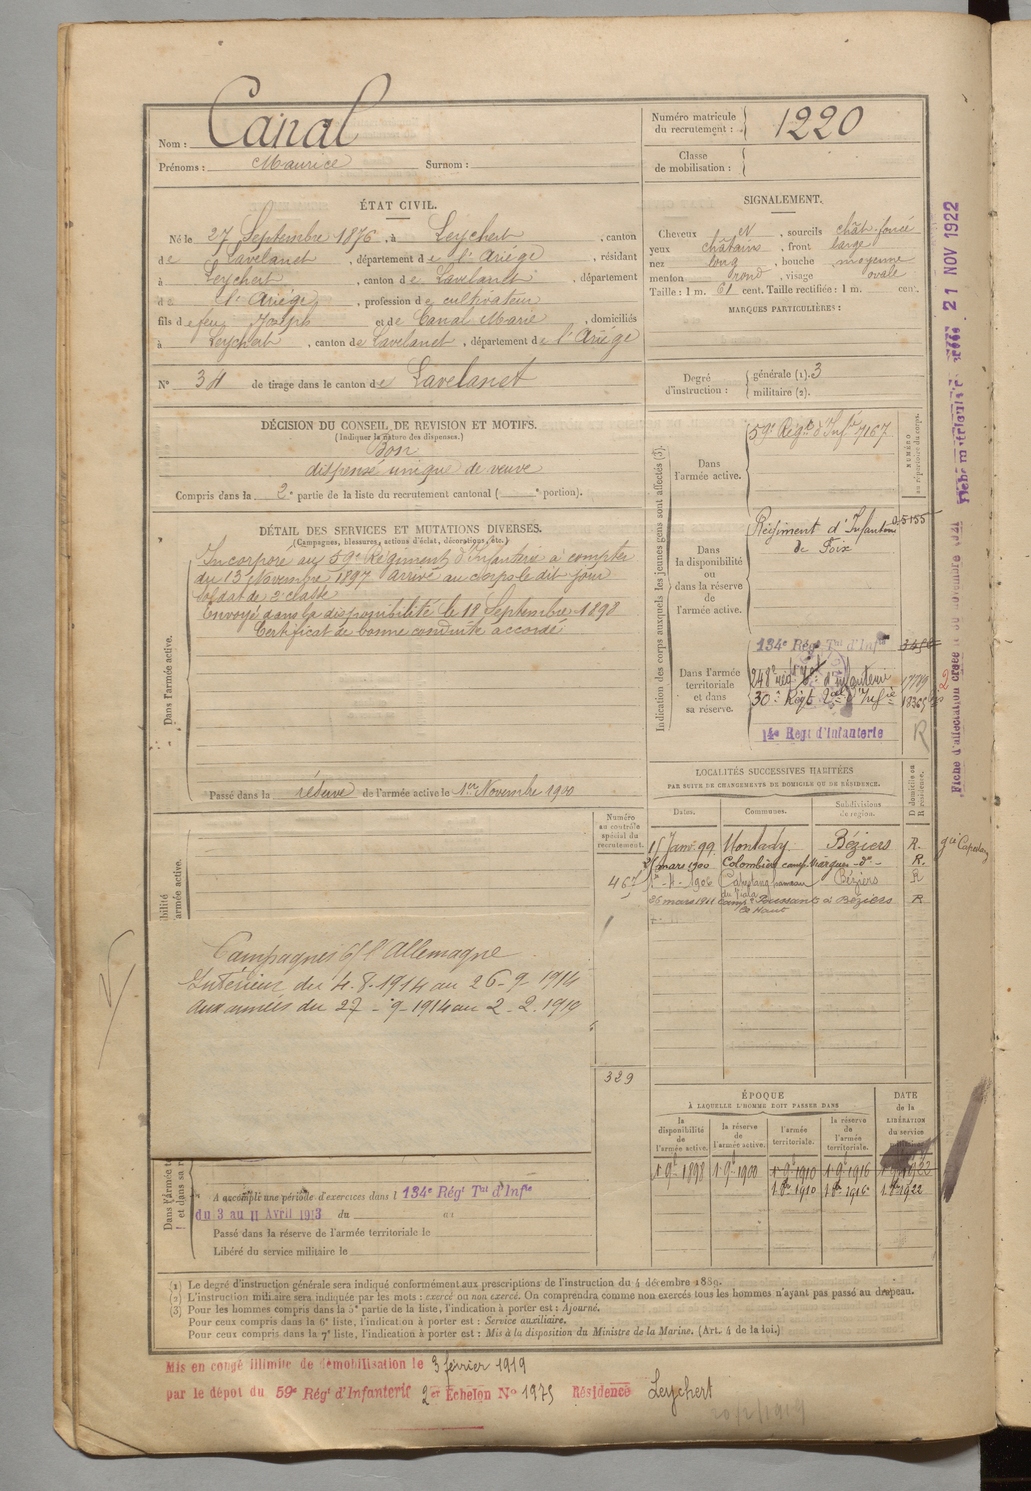 Nom : Canal
Prénoms : Maurice Surnom :
Numéro matricule du recrutement : 1220
Classe de mobilisation :
ÉTAT CIVIL.
Né le 27 Septembre 1876, à Leychert, canton
de Lavelanet, département de l'Ariège, résidant
à Leychert, canton de Lavelanet, département
de l'Ariège, profession de cultivateur
fils de feu Joseph et de Canal Marie, domiciliés
à Leychert, canton de Lavelanet, département de l'Ariège
N° 34 de tirage dans le canton de Lavelanet
SIGNALEMENT.
Cheveux N, sourcils chât. foncé
yeux châtains, front large
nez long, bouche moyenne
menton rond, visage ovale
Taille : 1 m. 61 cent. Taille rectifiée : 1 m. cent.
MARQUES PARTICULIÈRES :
Degré d'instruction : générale (1). 3
militaire (2).
DÉCISION DU CONSEIL DE REVISION ET MOTIFS.
(Indiquer la nature des dispenses.)
Bon
dispensé unique de veuve
Compris dans la 2e partie de la liste du recrutement cantonal ( e portion).
DÉTAIL DES SERVICES ET MUTATIONS DIVERSES.
(Campagnes, blessures, actions d'éclat, décorations, etc.)
Dans l'armée active.
Incorporé au 59e Régiment d'Infanterie à compter
du 13 Novembre 1897 arrivé au corps le dit jour
soldat de 2e classe
Envoyé dans la disponibilité le 18 Septembre 1898
Certificat de bonne conduite accordé
Passé dans la réserve de l'armée active le 1er Novembre 1900
Indication des corps auxquels les jeunes gens sont affectés (3).
NUMÉRO au répertoire du corps.
Dans l'armée active.
59e Régt d'Infie 7167
Dans la disponibilité ou dans la réserve de l'armée active.
Régiment d'Infanterie 05155
de Foix
Dans l'armée territoriale et dans sa réserve.
134e Régt Tal d'Infie
248e régt d'infanterie
30e Régt Tal d'Infie
14e Régt d'Infanterie
R
LOCALITÉS SUCCESSIVES HABITÉES
PAR SUITE DE CHANGEMENTS DE DOMICILE OU DE RÉSIDENCE.
Dates. Communes. Subdivisions de région. D domicile ou R résidence.
15 Janv. 99 Montady Béziers R.
mars 1900 Colombiers camp. -d°- R.
1906 Capestang hameau Béziers R
du Viala
25 mars 1911 Camp. Poussan à Béziers R
le Haut
Numéro au contrôle spécial du recrutement.
467
329
armée active.
Campagnes c/ l'Allemagne
Intérieur du 4.8.1914 au 26-9-1914
aux armées du 27-9-1914 au 2.2.1919
ÉPOQUE
À LAQUELLE L'HOMME DOIT PASSER DANS
la disponibilité de l'armée active. la réserve de l'armée active. l'armée territoriale. la réserve de l'armée territoriale. DATE de la LIBÉRATION du service
1 9e 1898 1 9e 1900 1 9e 1910 1 9e 1916 1922
1 8e 1910 1 8e 1916 1922
A accompli une période d'exercices dans l 134e Régt Tal d'Infie
du 3 au 11 Avril 1913 du au
Passé dans la réserve de l'armée territoriale le
Libéré du service militaire le
(1) Le degré d'instruction générale sera indiqué conformément aux prescriptions de l'instruction du 4 décembre 1889.
(2) L'instruction militaire sera indiquée par les mots : exercé ou non exercé. On comprendra comme non exercés tous les hommes n'ayant pas passé au drapeau.
(3) Pour les hommes compris dans la 5e partie de la liste, l'indication à porter est : Ajourné.
Pour ceux compris dans la 6e liste, l'indication à porter est : Service auxiliaire.
Pour ceux compris dans la 7e liste, l'indication à porter est : Mis à la disposition du Ministre de la Marine. (Art. 4 de la loi.)
Mis en congé illimité de démobilisation le 3 février 1919
par le dépôt du 59e Régt d'Infanterie 2 er Echelon N° 1975 Résidence Leychert
20/2/1919
Fiche d'affectation créée le novembre 1921
Fiche matricule 21 NOV 1922